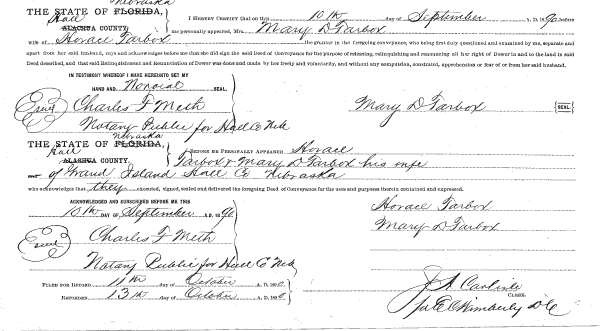 Nebraska
THE STATE OF FLORIDA,
Hall
ALACHUA COUNTY.
I HEREBY CERTIFY That on this 10th day of September A. D. 1890 before
me personally appeared, Mrs. Mary D Tarbox
wife of Horace Tarbox the grantor in the foregoing conveyance, who being first duly questioned and examined by me, separate and
apart from her said husband, says and acknowledges before me that she did sign the said Deed of Conveyance for the purpose of releasing, relinquishing and renouncing all her right of Dower in and to the land in said
Deed described, and that said Relinquishment and Renunciation of Dower was done and made by her freely and voluntarily, and without any compulsion, constraint, apprehension or fear of or from her said husband.
IN TESTIMONY WHEREOF I HAVE HEREUNTO SET MY
HAND AND Notorial SEAL.
Charles F Meth
Notary Public for Hall Co Neb
Mary D Tarbox SEAL
Nebraska
THE STATE OF FLORIDA,
Hall
ALACHUA COUNTY.
BEFORE ME PERSONALLY APPEARED Horace
Tarbox & Mary D Tarbox his wife
of Grand Island Hall Co Nebraska
who acknowledges that they executed, signed, sealed and delivered the foregoing Deed of Conveyance for the uses and purposes therein contained and expressed.
ACKNOWLEDGED AND SUBSCRIBED BEFORE ME THIS
10th DAY OF September A. D. 1890
Charles F Meth
Notary Public for Hall Co Neb
Horace Tarbox
Mary D Tarbox
FILED FOR RECORD 11th day of October A. D. 1890
RECORDED 13th day of October A. D. 1890
J A Carlisle
CLERK.
Per E C Wimberly D C